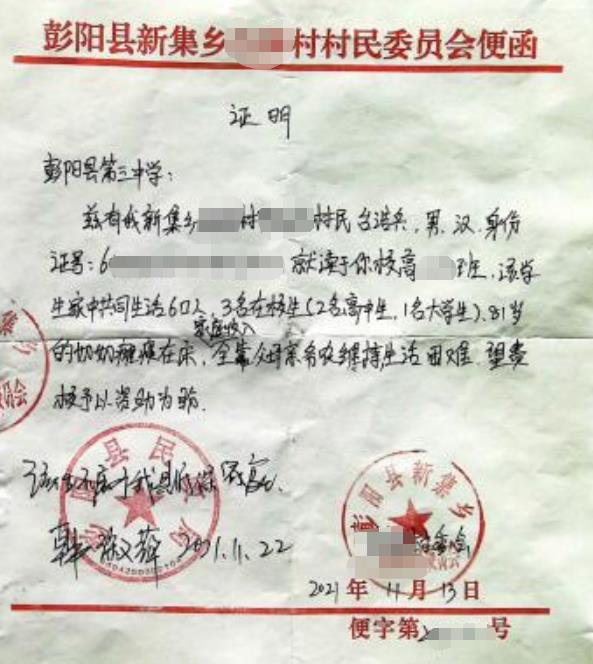 彭阳县新集乡 村村民委员会便函
证明
彭阳县第三中学：
兹有我新集乡 村 村民 男，汉，身份
证号：6 就读于你校高 班，该学
生家中共同生活6口人，3名在校生（2名高中生，1名大学生），81岁
家庭收入
的奶奶瘫痪在床，全靠父母亲务农维持，生活困难，望贵
校予以资助为盼。
县民
该生不属于我县 
2021.11.22
彭阳县新集乡
2021年 11月 13日
便字第 号